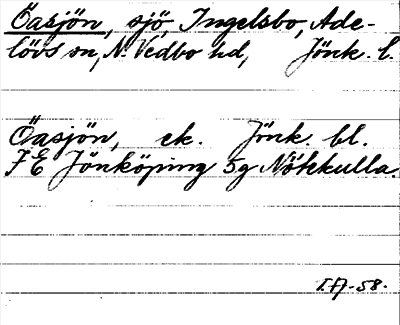 Öasjön, sjö, Ingelsbo, Ade-
lövs sn, N. Vedbo hd, Jönk. l.
Öasjön, ek. Jönk. bl.
7 E Jönköping 5g Nökkulla.
-58.